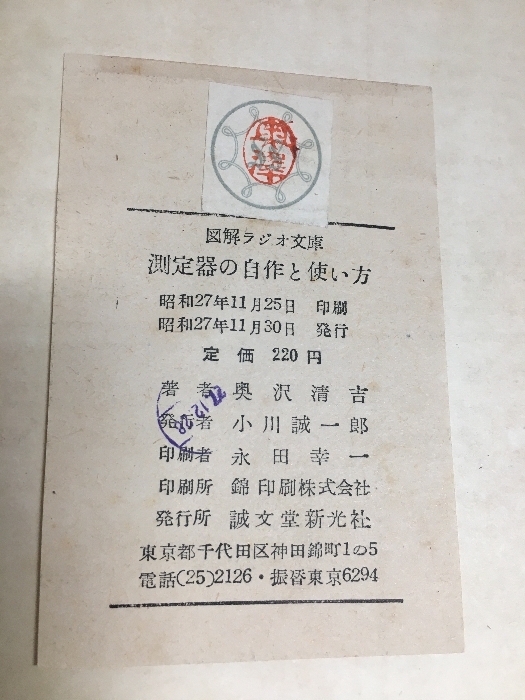 図解ラジオ文庫
測定器の自作と使い方
昭和27年11月25日 印刷
昭和27年11月30日 発行
定価 220円
著者 奥沢清吉
発行者 小川誠一郎
印刷者 永田幸一
印刷所 錦印刷株式会社
発行所 誠文堂新光社
東京都千代田区神田錦町1の5
電話(25)2126・振替東京6294